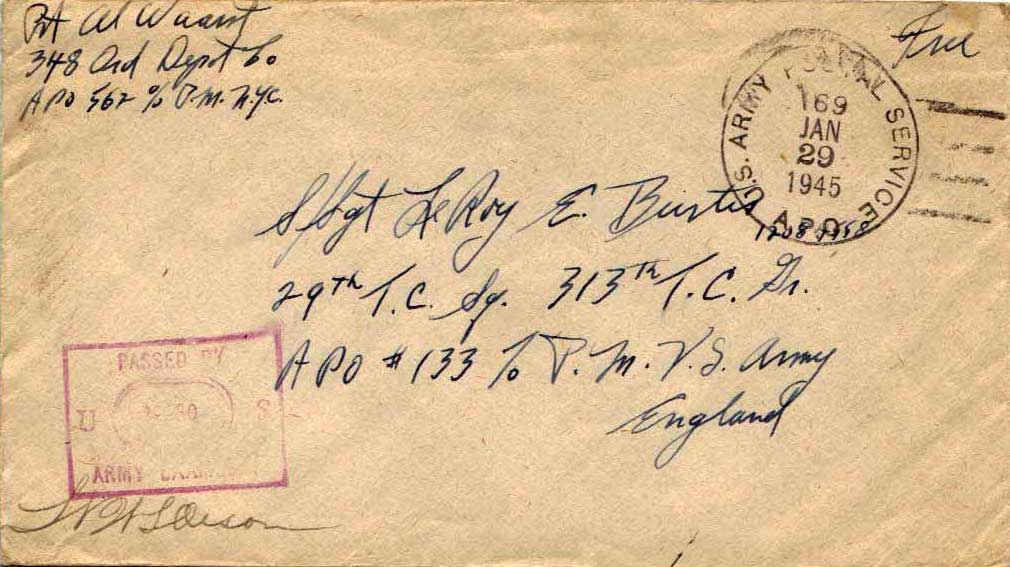 Pvt Al
348 Ord Depot Co
APO 562 c/o P.M. N.Y.C.
Free
U.S. ARMY POSTAL SERVICE
169
JAN
29
1945
A.P.O.
S/Sgt LeRoy E.
29th T.C. Sq. 313th T.C. Gr.
APO #133 c/o P.M. U.S. Army
England
PASSED BY
U S
ARMY EXAMINER